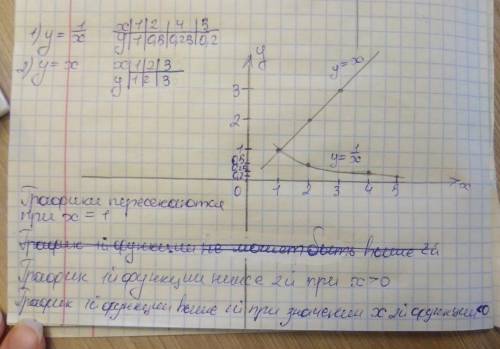 1) y = 1/x
x | 1 | 2 | 4 | 5
y | 1 | 0,5 | 0,25 | 0,2
2) y = x
x | 1 | 2 | 3
y | 1 | 2 | 3
y
y = x
3
2
1
0,5
0,25
0,2
y = 1/x
0 1 2 3 4 5 x
Графики пересекаются
при x = 1
График 1й функции не может быть выше 2й
График 1й функции ниже 2й при x>0
График 1й функции выше 2й при значении x 2й функции <0